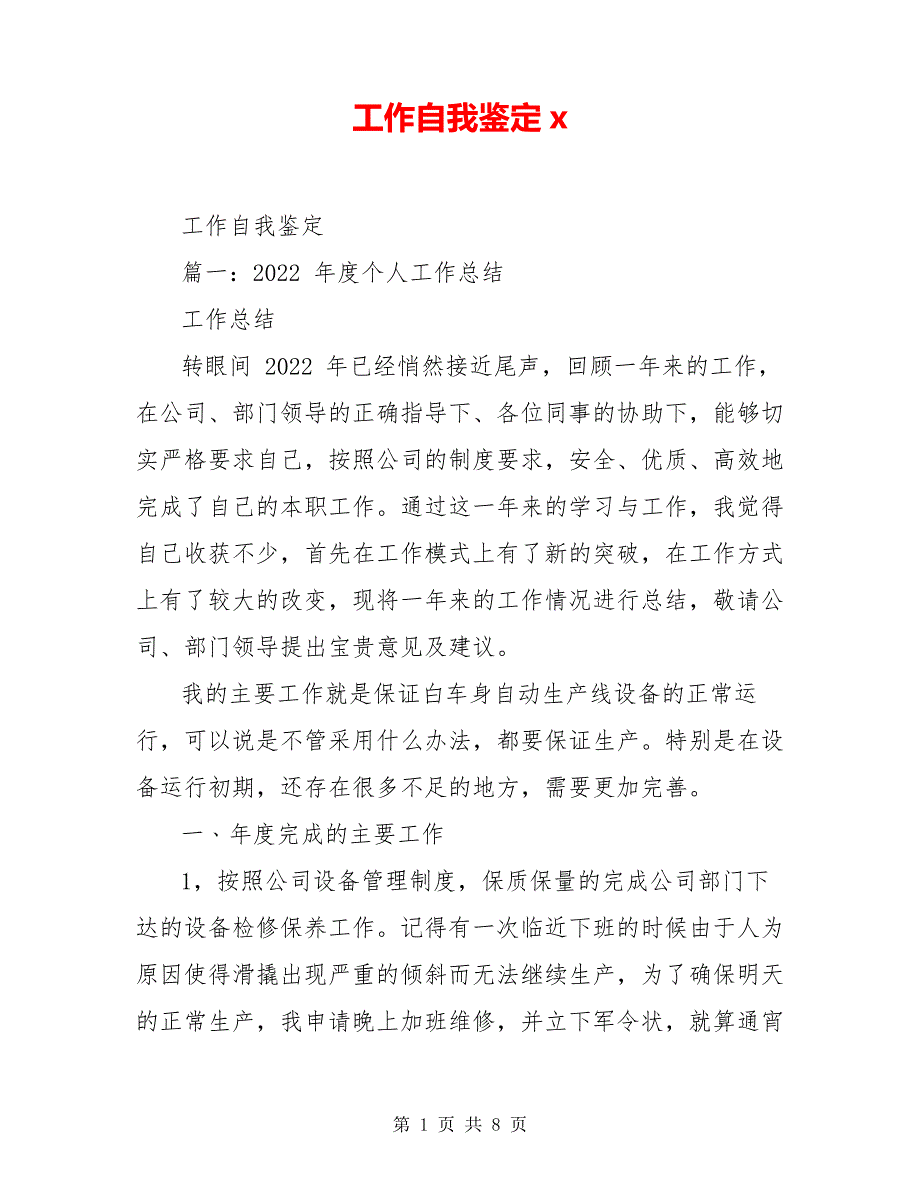 工作自我鉴定 x
工作自我鉴定
篇一：2022 年度个人工作总结
工作总结
转眼间 2022 年已经悄然接近尾声，回顾一年来的工作，
在公司、部门领导的正确指导下、各位同事的协助下，能够切
实严格要求自己，按照公司的制度要求，安全、优质、高效地
完成了自己的本职工作。通过这一年来的学习与工作，我觉得
自己收获不少，首先在工作模式上有了新的突破，在工作方式
上有了较大的改变，现将一年来的工作情况进行总结，敬请公
司、部门领导提出宝贵意见及建议。
我的主要工作就是保证白车身自动生产线设备的正常运
行，可以说是不管采用什么办法，都要保证生产。特别是在设
备运行初期，还存在很多不足的地方，需要更加完善。
一、年度完成的主要工作
1，按照公司设备管理制度，保质保量的完成公司部门下
达的设备检修保养工作。记得有一次临近下班的时候由于人为
原因使得滑撬出现严重的倾斜而无法继续生产，为了确保明天
的正常生产，我申请晚上加班维修，并立下军令状，就算通宵
第 1 页 共 8 页